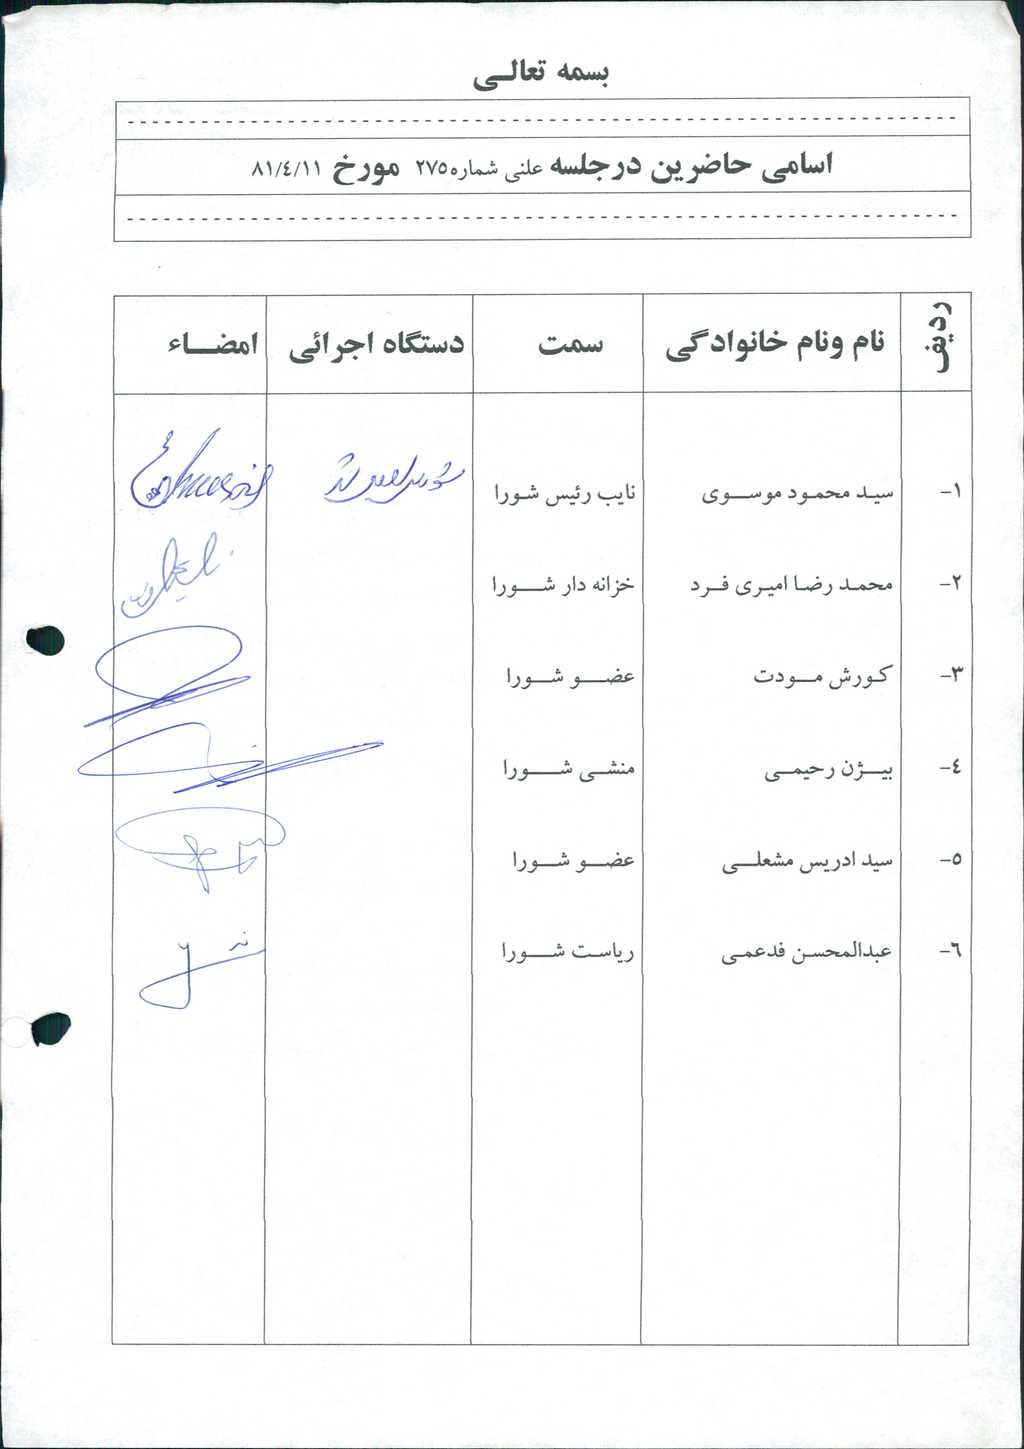 بسمه تعالی
اسامی حاضرین درجلسه علنی شماره ۲۷۵ مورخ ۸۱/٤/۱۱
ردیف نام ونام خانوادگی سمت دستگاه اجرائی امضاء
۱- سید محمود موسوی نایب رئیس شورا شورای اسلامی شهر
۲- محمد رضا امیری فرد خزانه دار شورا
۳- کورش مودت عضو شورا
٤- بیژن رحیمی منشی شورا
۵- سید ادریس مشعلی عضو شورا
۶- عبدالمحسن فدعمی ریاست شورا